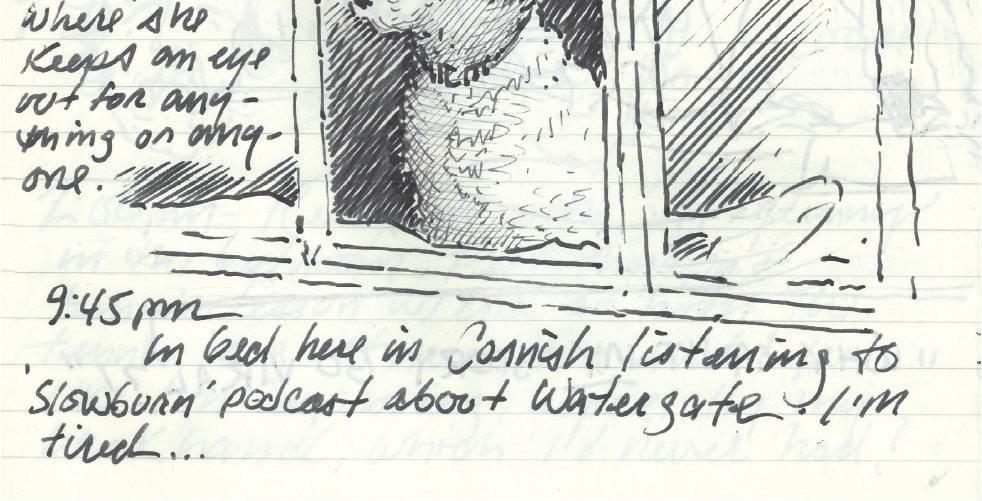 where she
keeps an eye
out for any-
thing or any-
one.
9:45 pm
In bed here in Cornish listening to
'Slowburn' podcast about Watergate. I'm
tired...